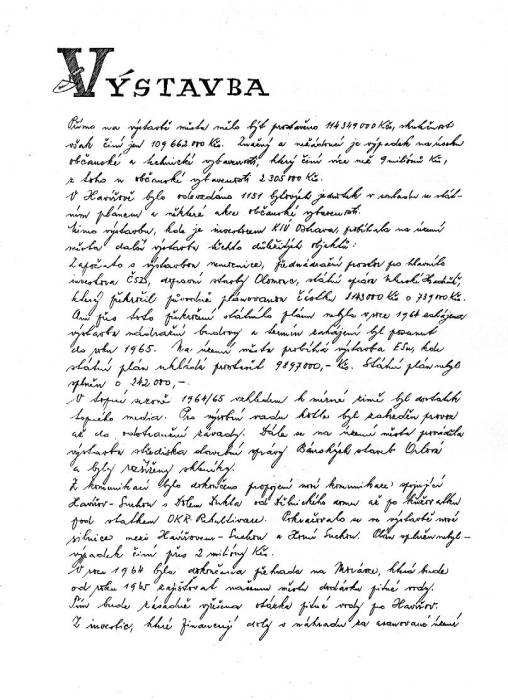 VÝSTAVBA
Přímo na výstavbě města mělo být prostavěno 114 349 000 Kčs, skutečnost
však činí jen 109 662 000 Kčs. Značný a nežádoucí je výpadek na úseku
občanské a technické vybavenosti, který činí více než 9 miliónů Kčs,
z toho u občanské vybavenosti 2 305 000 Kčs.
V Havířově bylo odevzdáno 1151 bytových jednotek v souladu se stát-
ním plánem a některé akce občanské vybavenosti.
Mimo výstavbu, kde je investorem KIV Ostrava probíhala na území
města další výstavba těchto důležitých objektů:
Započato s výstavbou nemocnice, přednádražní prostor po hlavního
investora ČSD, dopravní stavby Olomouc, státní správa
který překročil původně plánovanou částku 143 000 Kčs o 73 900 Kčs.
Ani přes toto překročení státního plánu nebyla v roce 1964 zahájena
výstavba nádražní budovy a termín zahájení byl posunut
do roku 1965. Na území města probíhá výstavba ESu, kde
státní plán ukládá prostavit 9 897 000,- Kčs. Státní plán nebyl
splněn o 242 000,-.
V topné sezoně 1964/65 vzhledem k mírné zimě byl dostatek
topného media. Pro výrobní vadu kotle byl zakázán provoz
až do odstranění závady. Dále se na území města prováděla
výstavba střediska stavební správy Báňských staveb Orlová
a byly rozšířeny skleníky.
Z komunikací bylo dokončeno propojení nové komunikace spojující
Havířov-Suchou s Dolem Dukla od Dělnického domu až po křižovatku
pod statkem OKR-Rekultivace. Pokračovalo se ve výstavbě nové
silnice mezi Havířovem-Suchou a Horní Suchou. Plán splněn nebyl-
výpadek činí přes 2 milióny Kčs.
V roce 1964 byla dokončena přehrada na Morávce, která bude
od roku 1965 zajišťovat našemu městu dodávku pitné vody.
Tím bude zásadně vyřešena otázka pitné vody pro Havířov.
Z investic, které financují doly s náhradu za asanované území